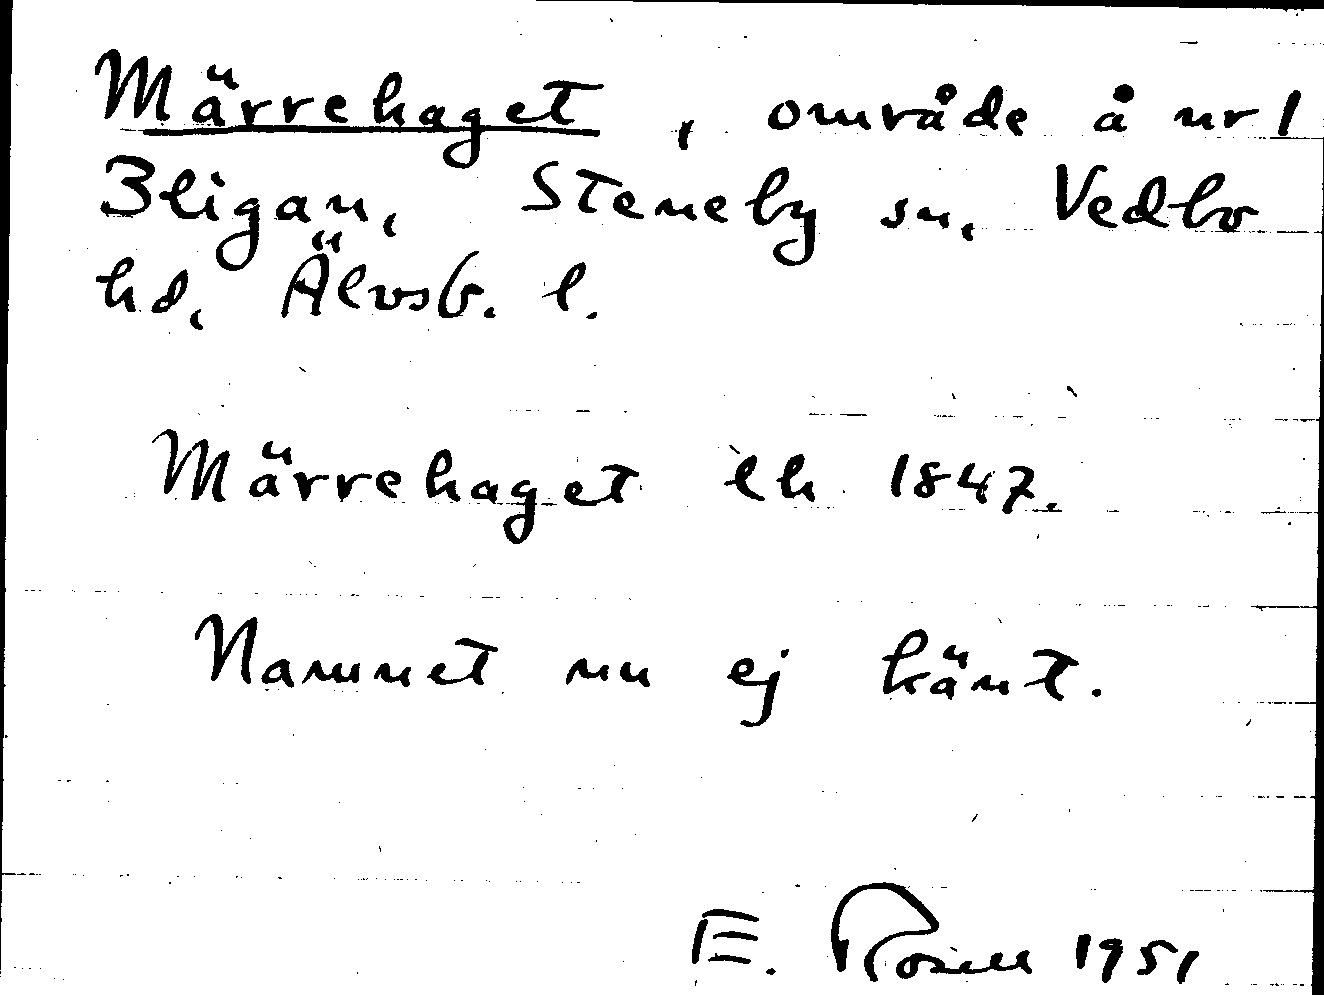 Märrehaget, område å nr 1
Bligan, Steneby sn, Vedbo
hd, Älvsb. l.
Märrehaget lh 1847.
Namnet nu ej känt.
E. Rosell 1951